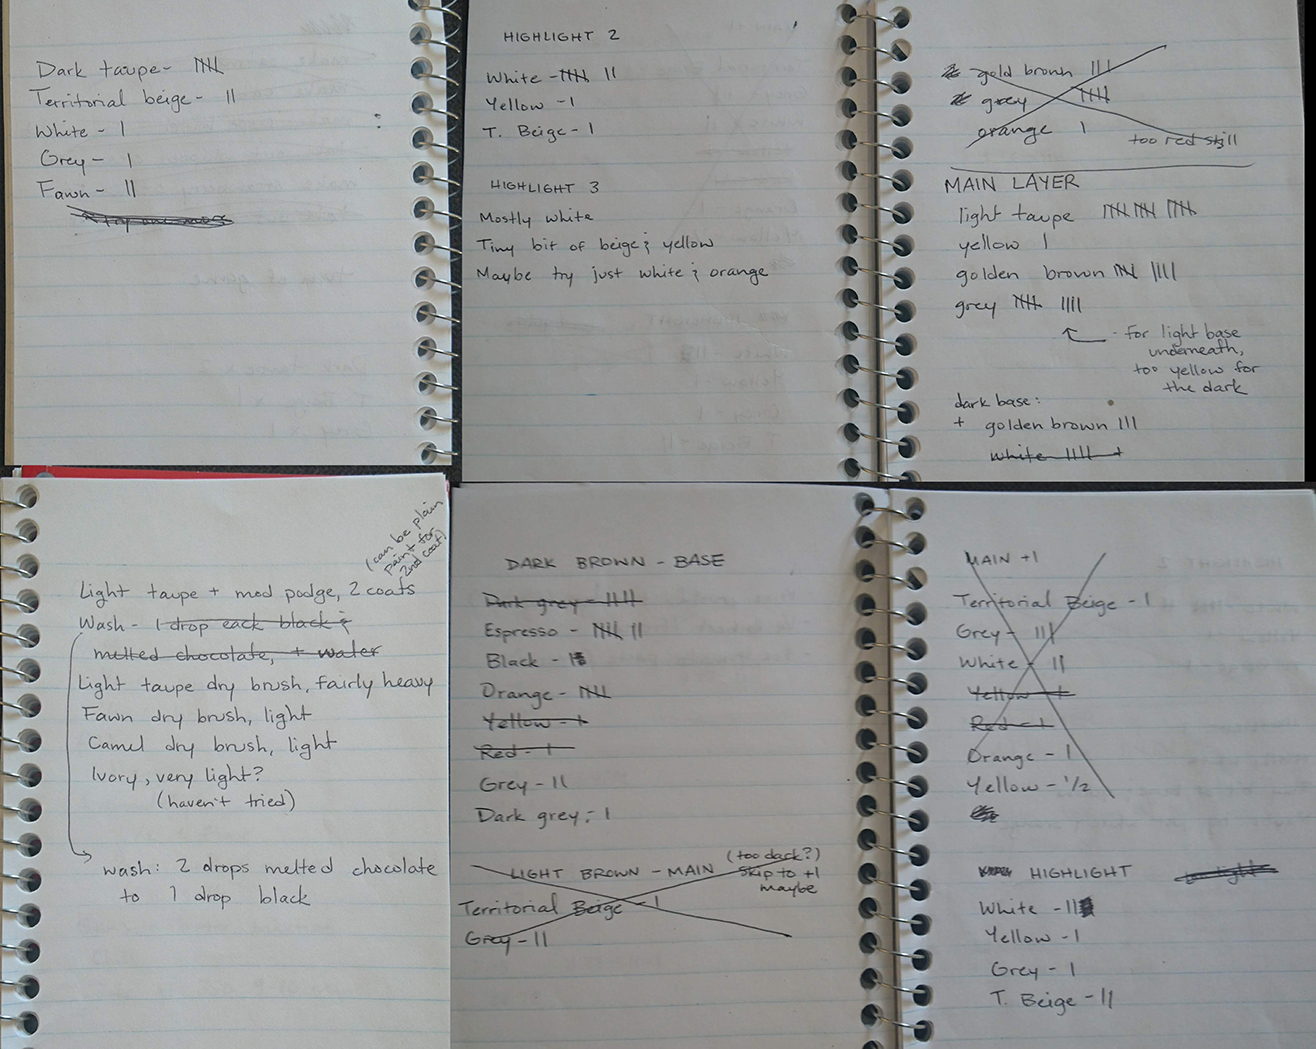 Dark taupe - 𝍸
Territorial beige - ||
White - |
Grey - |
Fawn - ||
HIGHLIGHT 2
White - 𝍸 ||
Yellow - |
T. Beige - |
HIGHLIGHT 3
Mostly white
Tiny bit of beige & yellow
Maybe try just white & orange
gold brown |||
grey 𝍸
orange |
too red still
MAIN LAYER
light taupe 𝍸 𝍸 𝍸
yellow |
golden brown 𝍸 ||||
grey 𝍸 ||||
- for light base
underneath,
too yellow for
the dark
dark base:
+ golden brown |||
white ||||
(can be plain
paint for
2nd coat)
Light taupe + mod podge, 2 coats
Wash - 1 drop each black &
melted chocolate, + water
Light taupe dry brush, fairly heavy
Fawn dry brush, light
Camel dry brush, light
Ivory, very light?
(haven't tried)
wash: 2 drops melted chocolate
to 1 drop black
DARK BROWN - BASE
Dark grey - ||||
Espresso - 𝍸 ||
Black - |
Orange - 𝍸
Yellow - |
Red - |
Grey - ||
Dark grey - |
LIGHT BROWN - MAIN (too dark?)
skip to +1
maybe
Territorial Beige - |
Grey - ||
MAIN +1
Territorial Beige - |
Grey - |||
White - ||
Yellow - |
Red - |
Orange - |
Yellow - 1/2
HIGHLIGHT
White - ||
Yellow - |
Grey - |
T. Beige - ||